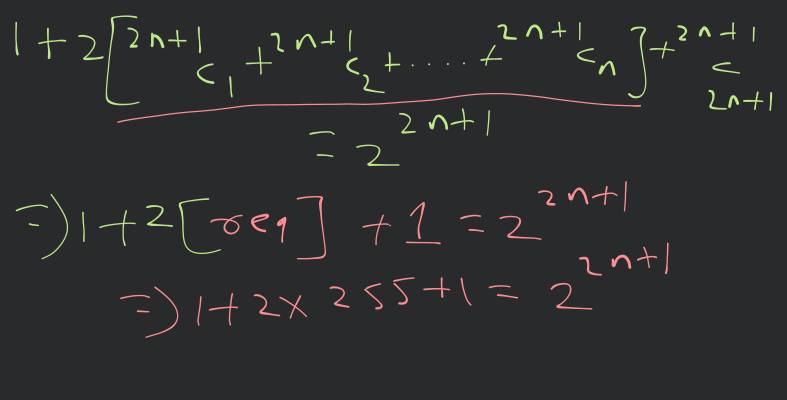 1 + 2 [ ²ⁿ⁺¹C₁ + ²ⁿ⁺¹C₂ + ..... + ²ⁿ⁺¹Cₙ ] + ²ⁿ⁺¹C₂ₙ₊₁
= 2²ⁿ⁺¹
⇒ 1 + 2 [ req ] + 1 = 2²ⁿ⁺¹
⇒ 1 + 2 × 255 + 1 = 2²ⁿ⁺¹